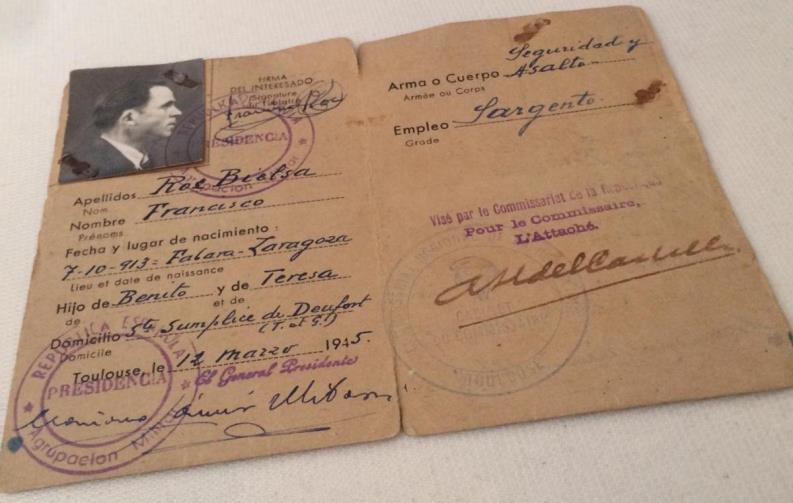 FIRMA
DEL INTERESADO
Signature
du Titulaire
PRESIDENCIA
Agrupacion
Apellidos Roc Bielsa
Nom
Nombre Francisco
Prénoms
Fecha y lugar de nacimiento :
7-10-913 = Fabara - Zaragoza
Lieu et date de naissance
Hijo de Benito y de Teresa
de et de
Domicilio Ste Sumplice de Deufort
Domicile (T. et G.)
Toulouse, le 12 marzo 1945.
El General Presidente
REPUBLICA ESPAÑOLA
PRESIDENCIA
Agrupacion Militar
Arma o Cuerpo Seguridad y
Asalto
Armée ou Corps
Empleo Sargento
Grade
Visé par le Commissariat de la République
Pour le Commissaire,
L'Attaché.
TOULOUSE